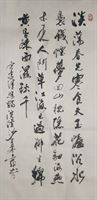 淡蕩春光寒食天玉爐沉水
裊殘烟夢回山枕隱花鈿海燕
未來人鬥草江梅已過柳生綿
黃昏疏雨濕秋千